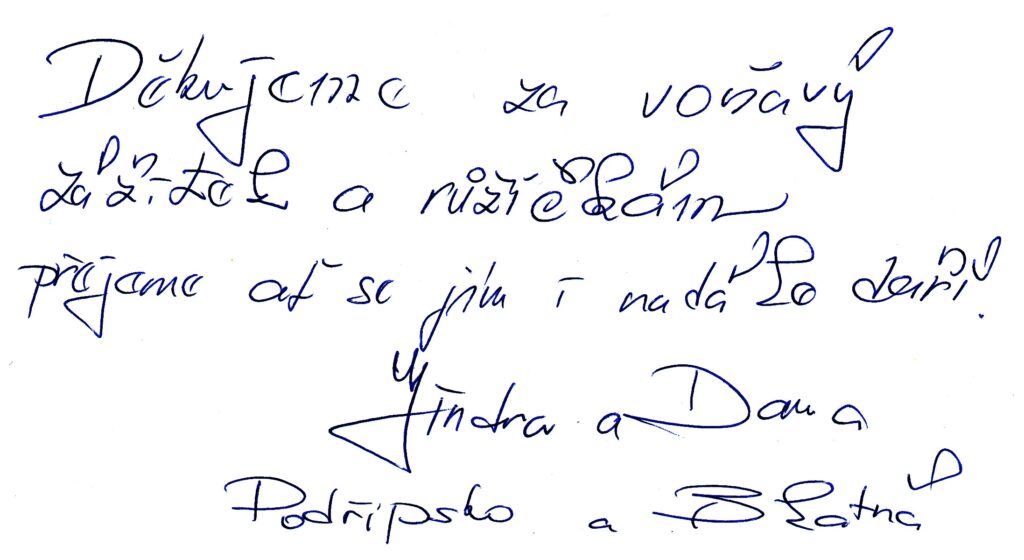 Děkujeme za voňavý
zážitek a růžičkám
přejeme ať se jim i nadále daří.
Jindra a Dana
Podřipsko a Blatná